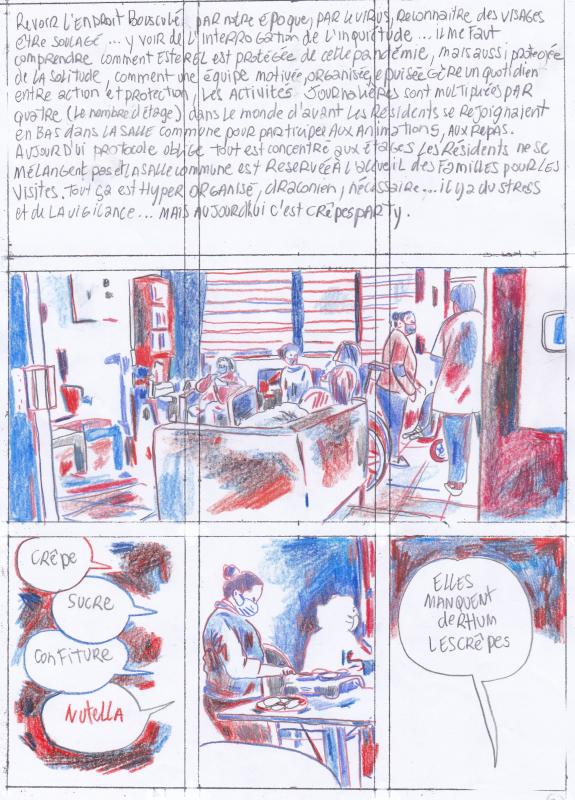 Revoir l'endroit bousculé par notre époque, par le virus, reconnaitre des visages
être soulagé ... y voir de l'interrogation de l'inquiétude ... il me faut
comprendre comment Esterel est protégée de cette pandémie, mais aussi protégée
de la solitude, comment une équipe motivée, organisée, épuisée gère un quotidien
entre action et protection, les activités journalières sont multipliées par
quatre (le nombre d'étage) dans le monde d'avant les résidents se rejoignaient
en bas dans la salle commune pour participer aux animations, aux repas.
Aujourd'ui protocole oblige tout est concentré aux étages les résidents ne se
mélangent pas et la salle commune est réservée à l'accueil des familles pour les
visites. Tout ça est hyper organisé, draconien, nécessaire ... il y a du stress
et de la vigilance ... mais aujourdhui c'est crêpes party.
CRÊPE
SUCRE
CONFITURE
NUTELLA
ELLES
MANQUENT
de RHUM
LES CRÊPES